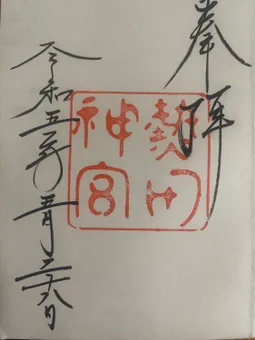 奉拝
熱田神宮
令和五年五月二十八日